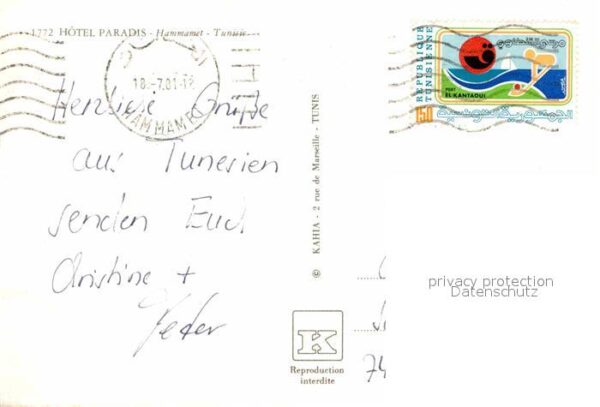 1772 HÔTEL PARADIS - Hammamet - Tunisie
18.-7.81-18
HAMMAMET
REPUBLIQUE
TUNISIENNE
PORT
EL KANTAOUI
150
مرسى القنطاوي
الجمهورية التونسية
Herzliche Grüße
aus Tunesien
senden Euch
Christine +
Peter
© KAHIA - 2 rue de Marseille - TUNIS
privacy protection
Datenschutz
74
K
Reproduction
interdite